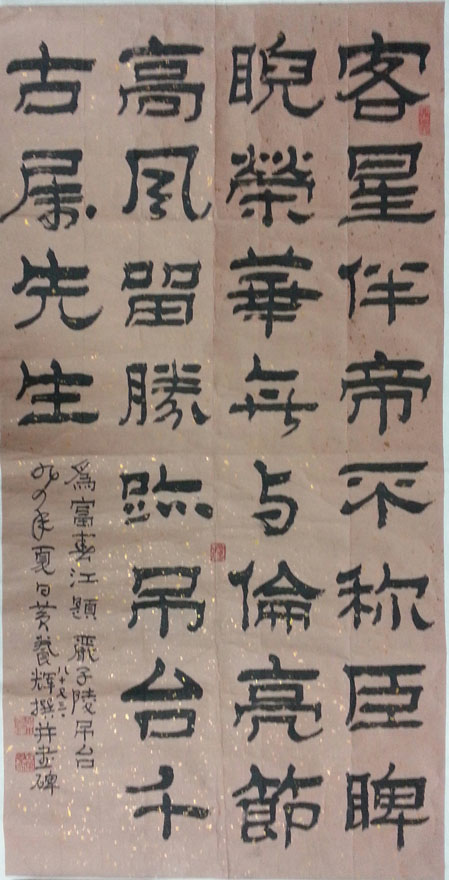 客星伴帝不称臣睥
睨榮華無与倫亮節
高風留勝跡吊台千
古属先生
爲富春江題嚴子陵吊台
年夏日黄養輝撰并書碑
八十又三